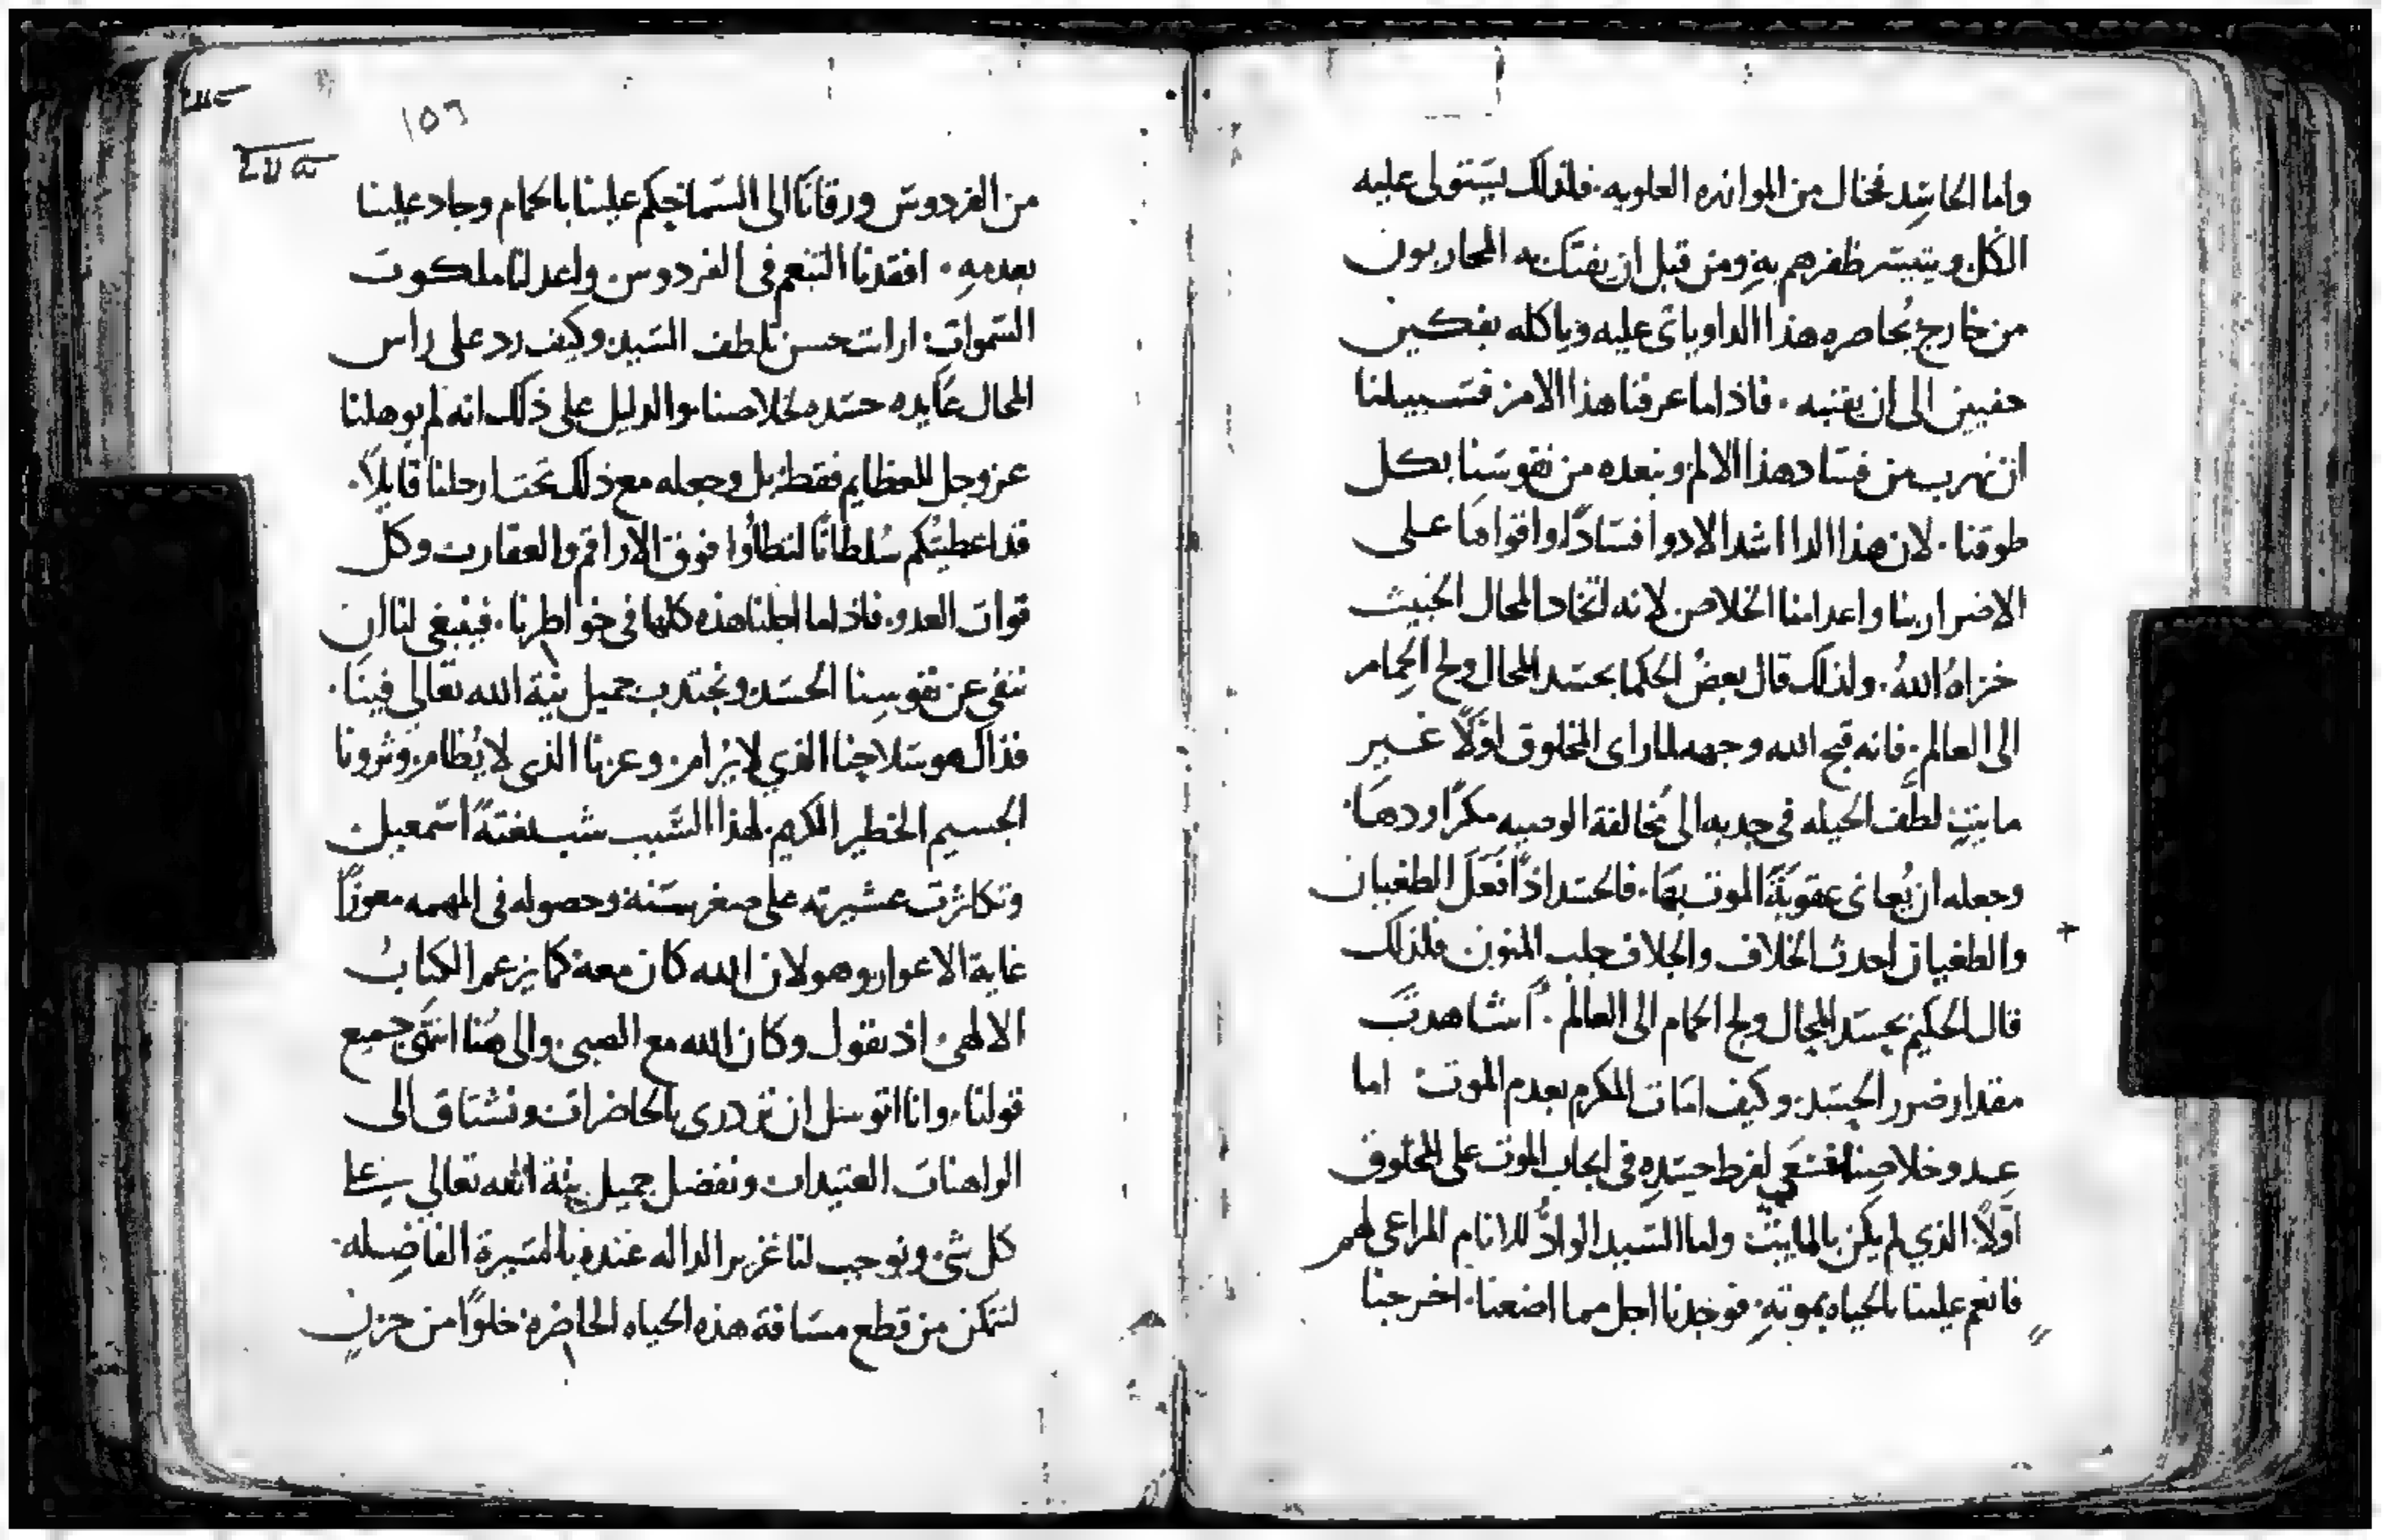 واما الحاسد فخال من الموازره العلويه. فلذلك يستولى عليه
الكل ويتيسر ظفرهم به ومن قبل ان يفتك به المحاربون
من خارج يحاصره هذا الدا وياتى عليه وياكله بفكين
حفيين الى ان يفنيه. فاذ اما عرفنا هذا الامر فسبيلنا
ان نهرب من فساد هذا الالم ونبعده من نفوسنا بكل
طوقنا. لان هذا الدا اشد الادوا فسادًا واقواها على
الاضرار بنا واعدامنا الخلاص لانه اتخاد المحال الخبيث
خزاهُ اللهُ. ولذلك قال بعضُ الحكما بحسد المحال ولج الحِمام
الى العالم. فانه قبح الله وجهه لما راى المخلوق اوّلًا غير
مايتٍ لطّف الحيله فى جدبه الى مخالفة الوصيه مكرًا ودهاً.
وجعله ان يُعانى عقوبَةَ الموت بها. فالحسد اذًا فعَلَ الطغيان
والطغيان احدث الخلاف والخلاف جلب المنون فلذلك
قال الحكيم بحسد المحال ولج الحمام الى العالم. اشاهدتَ
مقدار ضرر الحسد. وكيف امات المكرم بعدم الموت اما
عدو خلاصنا فسَعَي لفرط حسده فى ايجاب الموت على المخلوق
اوّلًا الذي لم يكن بالمايت واما السيد الوادُّ للانام المراعي لهم
فانعم علينا بالحياه بموته. فوجدنا اجل مما اضعنا. اخرجنا
١٥٦
من الفردوس ورقانا الى السما حكم علينا بالحمام وجاد علينا
بعدمهِ. افقدنا التنعم فى الفردوس واعد لنا ملكوت
السموات. ارايت حسن تلطف السيد وكيف رد على راس
المحال عَايده حسده لخلاصنا والدليل على ذلك انه لم يوهلنا
عز وجل للعظايم فقط بل وجعله مع ذلك تحت ارجلنا قايلًا.
قد اعطيتُكم سُلطانًا لتطاوا فوق الاراقم والعقارب وكل
قوات العدو. فاذ اما اجلنا هذه كلها فى خواطرنا. فينبغى لنا ان
ننفي عن نفوسِنا الحسَد ونجتدب جميل نية الله تعالي فينا.
فذاك هو سلاحنا الذي لا يُرام. وعزنا الذى لا يُظام. وثرونا
الجسيم الخطير الكريم. لهذا السبب شب بغتةً اسمعيل
وتكاثرت عشيرته على صغر سنه وحصوله فى المهمه معوزًا
غاية الاعوار وهو لان الله كان معه كما يزعم الكتابُ
الالهى. اذ يقول وكان الله مع الصبى. والى هُنا انتهى جميع
قولنا. وانا اتوسل ان نزدرى بالحاضرات ونشتاق الى
الراهنات العتيدات ونفضل جميل نية الله تعالي علي
كل شى. ونوجب لنا غزير الداله عنده بالسيرة الفاضِله.
لنتمكن من قطع مسافة هذه الحياه الحاضره خلوًا من حزن